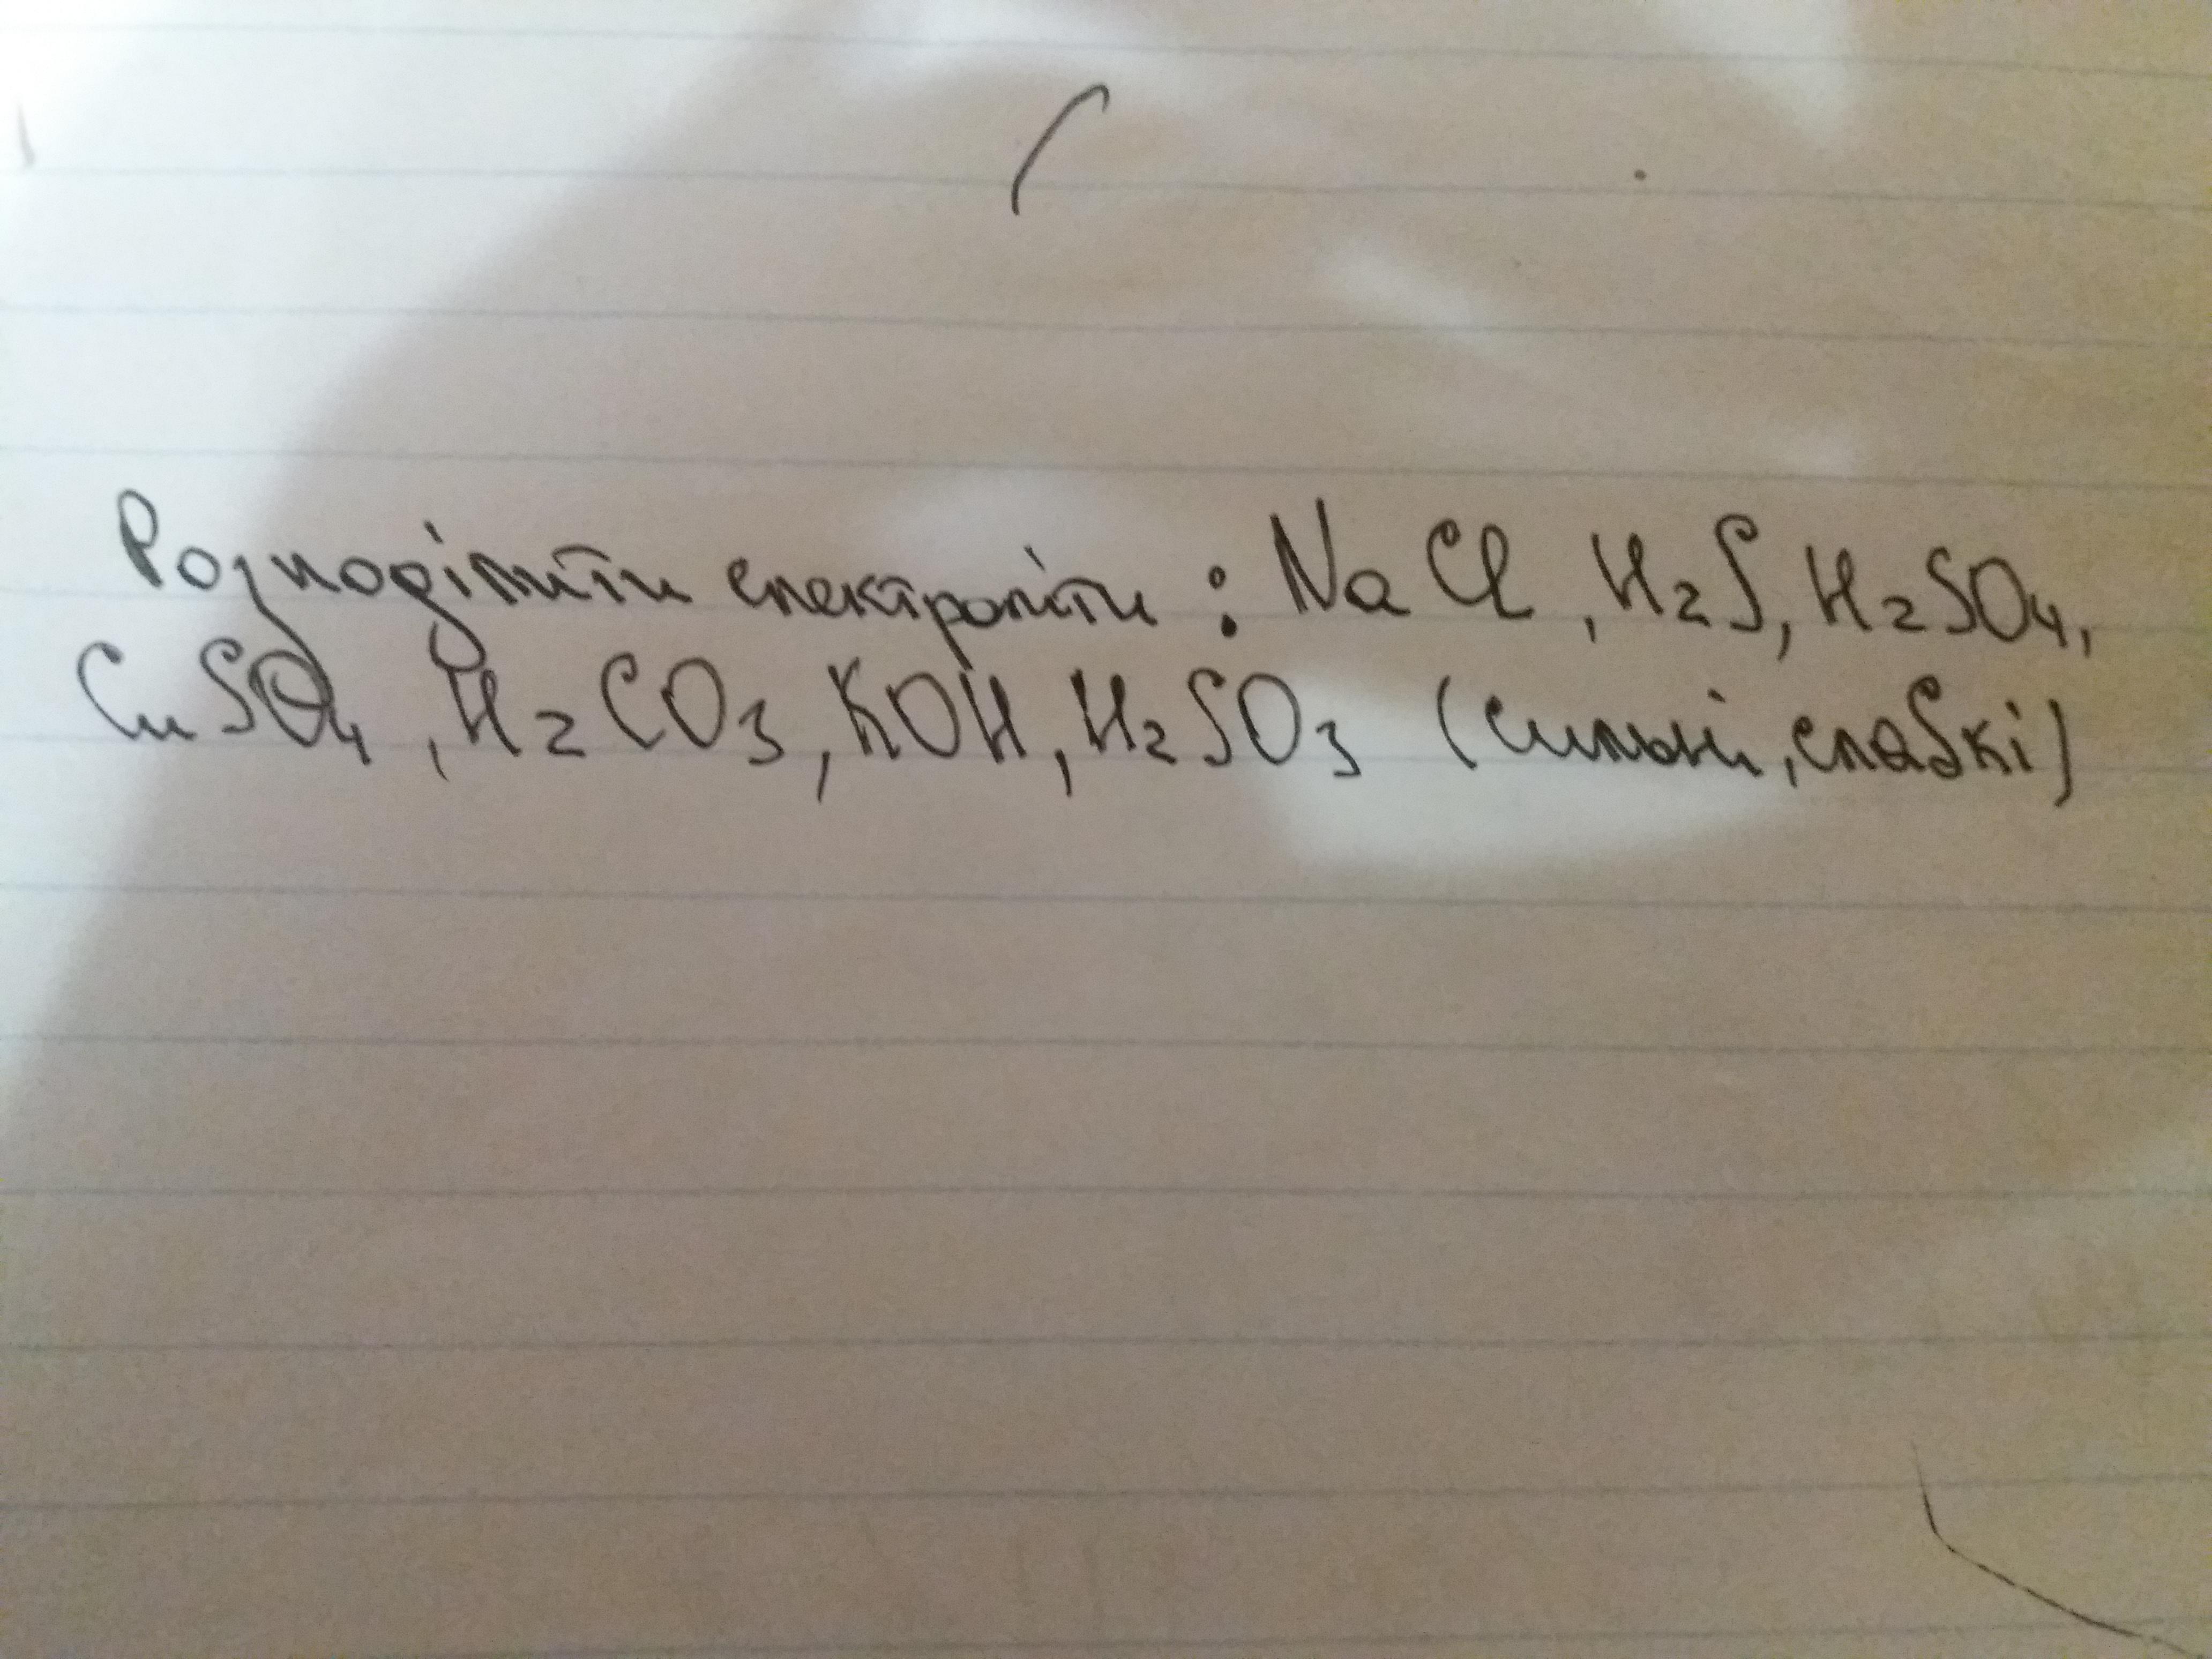 Розподілити електроліти : NaCl, H₂S, H₂SO₄,
CuSO₄, H₂CO₃, KOH, H₂SO₃ (сильні, слабкі)